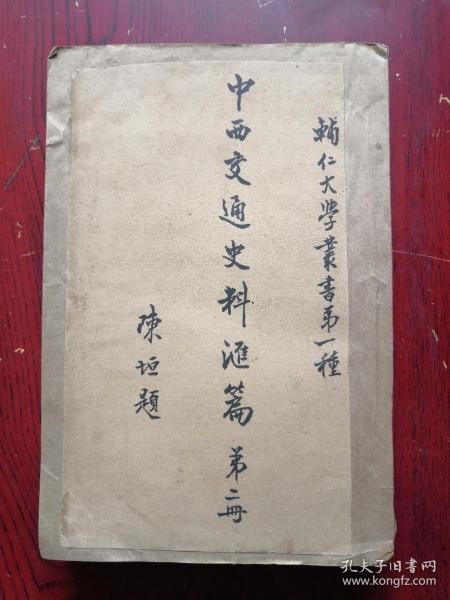 輔仁大學叢書第一種
中西交通史料滙篇 第二冊
陳垣題
孔夫子旧书网
www.kongfz.com